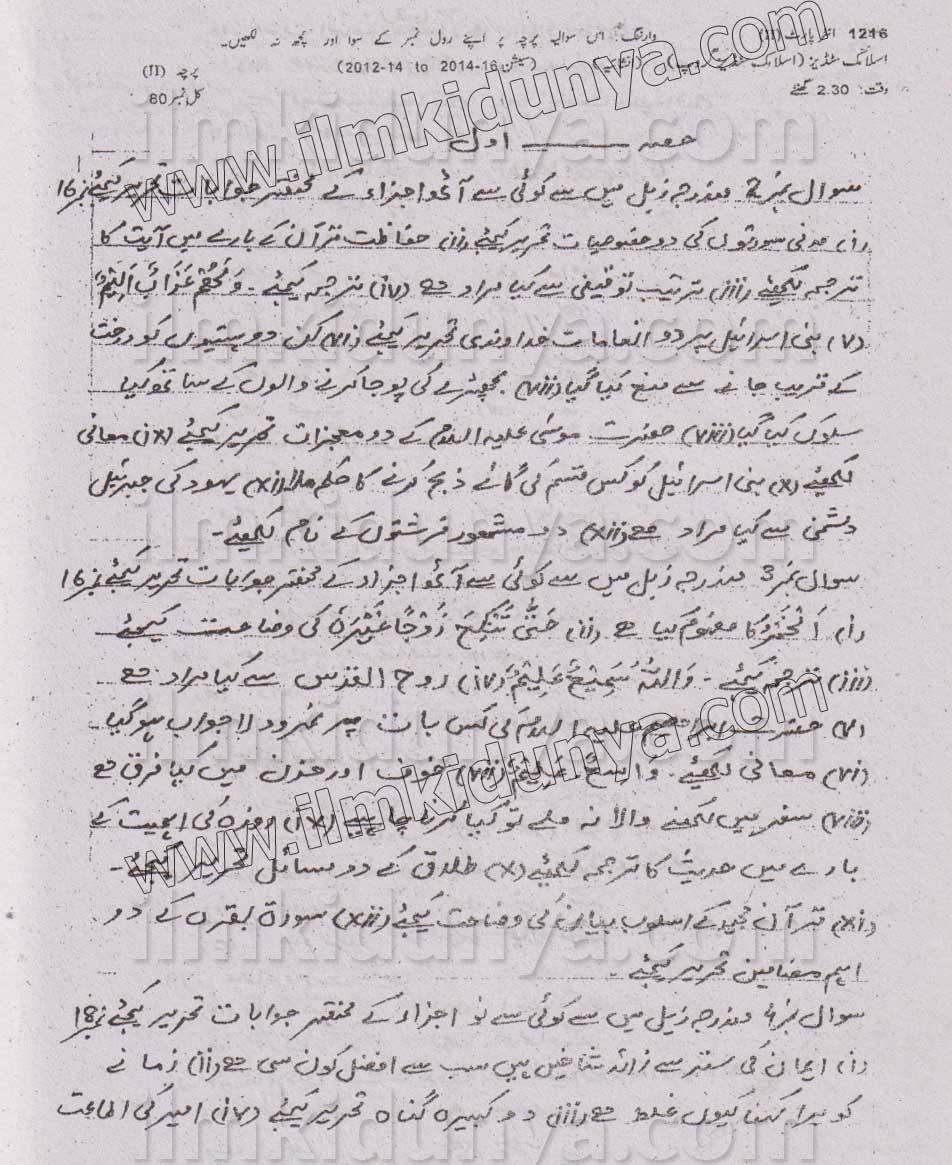 1216 انٹر پارٹ (II) وارننگ: اس سوالیہ پرچہ پر اپنے رول نمبر کے سوا اور کچھ نہ لکھیں۔
اسلامک سٹڈیز (سیشن 2012-14 to 2014-16) پرچہ (II)
وقت: 2.30 گھنٹے کل نمبر 80
حصہ اول
سوال نمبر 2 مندرجہ ذیل میں سے کوئی سے آٹھ اجزاء کے مختصر جوابات تحریر کیجئے نمبر 16
(i) مدنی سورتوں کی دو خصوصیات تحریر کیجئے (ii) حفاظت قرآن کے بارے میں آیت کا
ترجمہ لکھئے (iii) ترتیب توقیفی سے کیا مراد ہے (iv) ترجمہ کیجئے ۔ وَلَهُمْ عَذَابٌ اَلِيْمٌ
(v) بنی اسرائیل پر دو انعامات خداوندی تحریر کیجئے (vi) کن دو ہستیوں کو درخت
کے قریب جانے سے منع کیا گیا (vii) بچھڑے کی پوجا کرنے والوں کے ساتھ کیا
سلوک کیا گیا (viii) حضرت موسٰی علیہ السلام کے دو معجزات تحریر کیجئے (ix) معانی
لکھئے (x) بنی اسرائیل کو کس قسم کی گائے ذبح کرنے کا حکم ملا (xi) یہود کی جبرئیل
دشمنی سے کیا مراد ہے (xii) دو مشہور فرشتوں کے نام لکھئے ۔
سوال نمبر 3 مندرجہ ذیل میں سے کوئی سے آٹھ اجزاء کے مختصر جوابات تحریر کیجئے نمبر 16
(i) اَلْخَمْرُ کا مفہوم کیا ہے (ii) حَتّٰى تَنْكِحَ زَوْجًا غَيْرَهٗ کی وضاحت کیجئے
(iii) ترجمہ کیجئے ۔ وَاللّٰهُ سَمِيْعٌ عَلِيْمٌ (iv) روح القدس سے کیا مراد ہے
(v) حضرت ابراھیم علیہ السلام کی کس بات پر نمرود لاجواب ہو گیا
(vi) معانی لکھئے ۔ وَاسِعٌ عَلِيْمٌ (vii) خوف اور حزن میں کیا فرق ہے
(viii) سفر میں لکھنے والا نہ ملے تو کیا کرنا چاہیے (ix) روزہ کی اہمیت کے
بارے میں حدیث کا ترجمہ لکھئے (x) طلاق کے دو مسائل تحریر کیجئے ۔
(xi) قرآن مجید کے اسلوب بیان کی وضاحت کیجئے (xii) سورۃ البقرہ کے دو
اہم مضامین تحریر کیجئے ۔
سوال نمبر 4 مندرجہ ذیل میں سے کوئی سے نو اجزاء کے مختصر جوابات تحریر کیجئے نمبر 18
(i) ایمان کی ستر سے زائد شاخیں ہیں سب سے افضل کون سی ہے (ii) زمانے
کو برا کہنا کیوں غلط ہے (iii) دو کبیرہ گناہ تحریر کیجئے (iv) امیر کی اطاعت
www.ilmkidunya.com
www.ilmkidunya.com
ilmkidunya.com